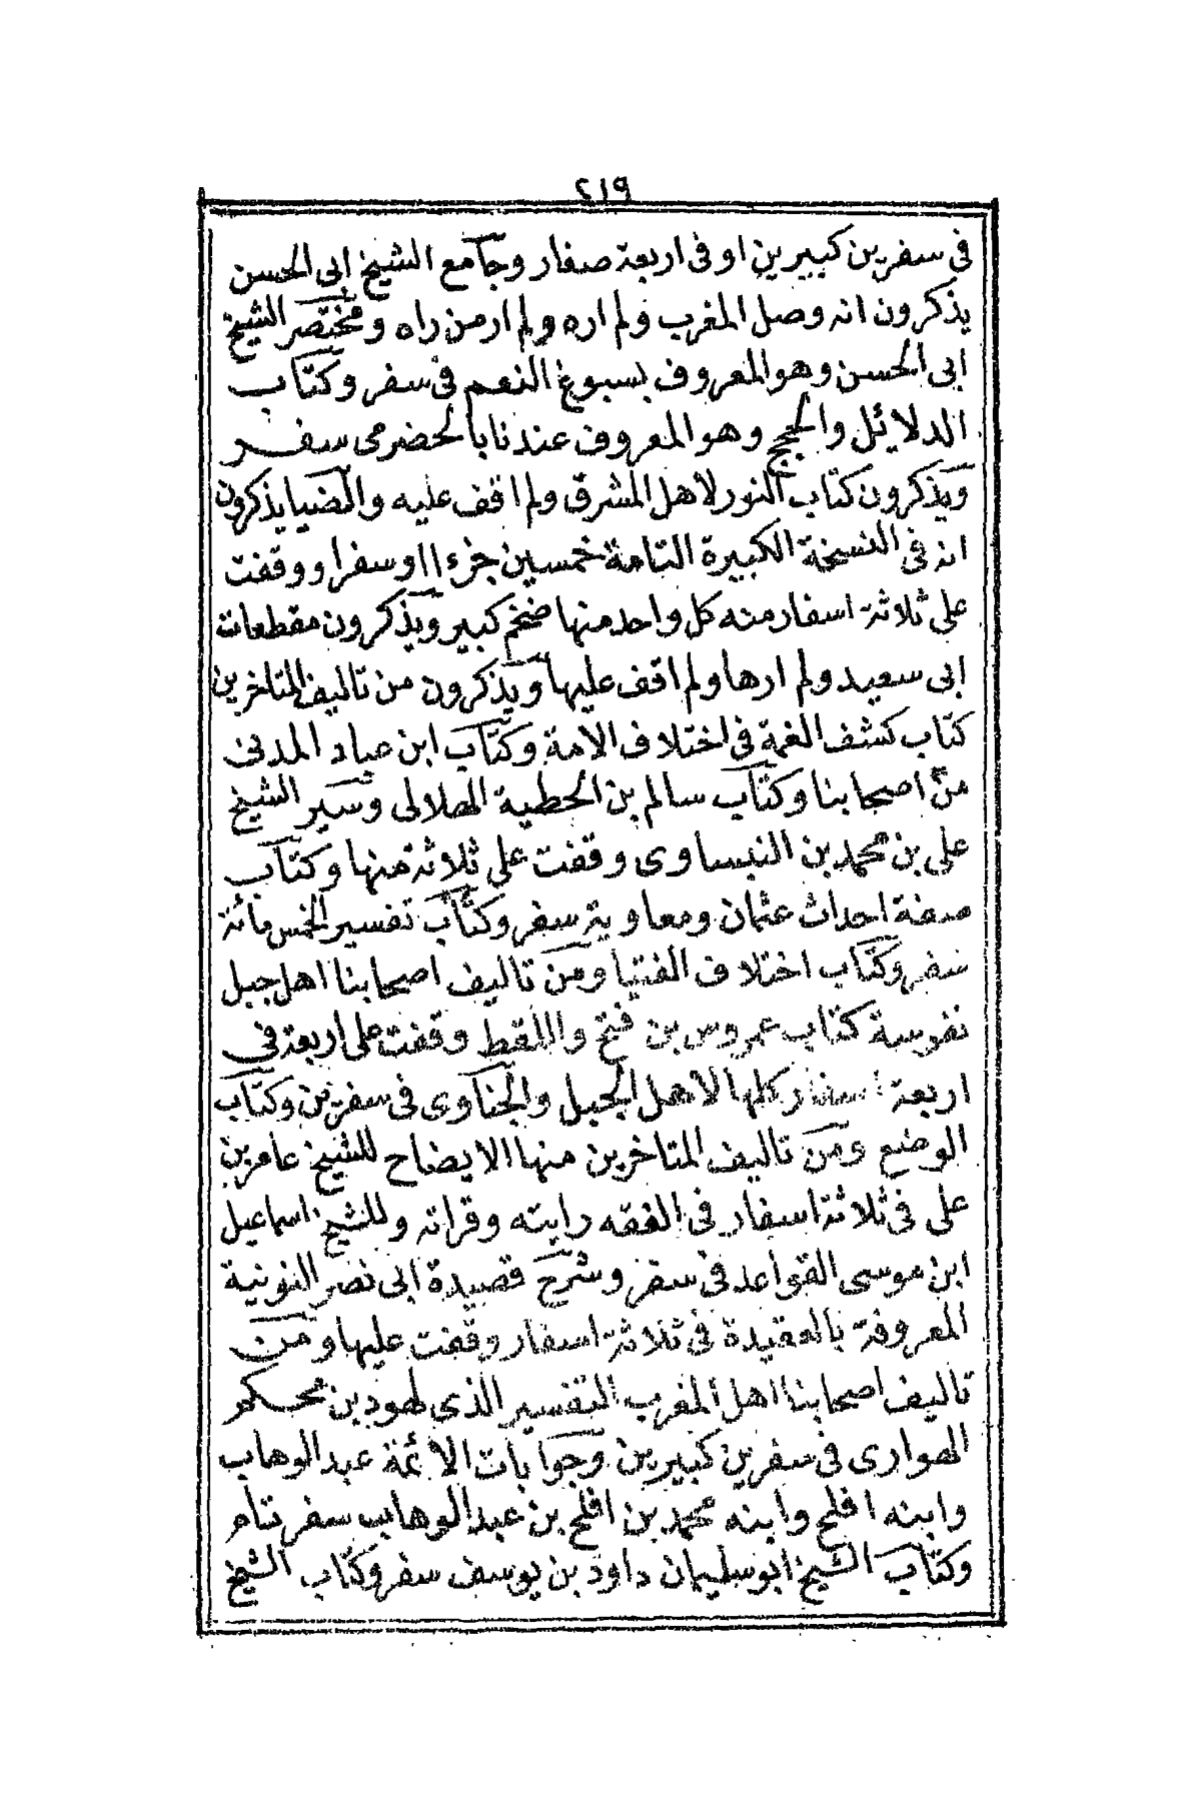 ٢١٩
فى سفرين كبيرين او فى اربعة صفار وجامع الشيخ ابى الحسن
يذكرون انه وصل المغرب ولم اره ولم ار من راه ومختصر الشيخ
ابى الحسن وهو المعروف بسبوغ النعم فى سفر وكتاب
الدلائل والحجج وهو المعروف عندنا بالحضرمى سفر
ويذكرون كتاب النور لاهل المشرق ولم اقف عليه والضيا يذكرون
انه فى النسخة الكبيرة التامة خمسين جزءا او سفرا ووقفت
على ثلاثة اسفار منه كل واحد منها ضخم كبير ويذكرون مقطعات
ابى سعيد ولم ارها ولم اقف عليها ويذكرون من تاليف المتاخرين
كتاب كشف الغمة فى اختلاف الامة وكتاب ابن عباد المدنى
من اصحابنا وكتاب سالم بن الحطية الهلالى وسير الشيخ
على بن محمد بن البسياوى وقفت على ثلاثة منها وكتاب
صفة احداث عثمان ومعاوية سفر وكتاب تفسير الخمس مائة
سفر وكتاب اختلاف الفتيا ومن تاليف اصحابنا اهل جبل
نفوسة كتاب عمروس بن فتح واللقط وقفت على اربعة فى
اربعة اسفار كلها لاهل الجبل والجناوى فى سفرين وكتاب
الوضع ومن تاليف المتاخرين منها الايضاح للشيخ عامر بن
على فى ثلاثة اسفار فى الفقه رايته وقراته وللشيخ اسماعيل
ابن موسى القواعد فى سفر وشرح قصيدة ابى نصر النونية
المعروفة بالعقيدة فى ثلاثة اسفار وقفت عليها ومن
تاليف اصحابنا اهل المغرب التفسير الذى لهود بن محكم
الهوارى فى سفرين كبيرين وجوابات الائمة عبد الوهاب
وابنه افلح وابنه محمد بن افلح بن عبد الوهاب سفر تام
وكتاب الشيخ ابو سليمان داود بن يوسف سفر وكتاب الشيخ